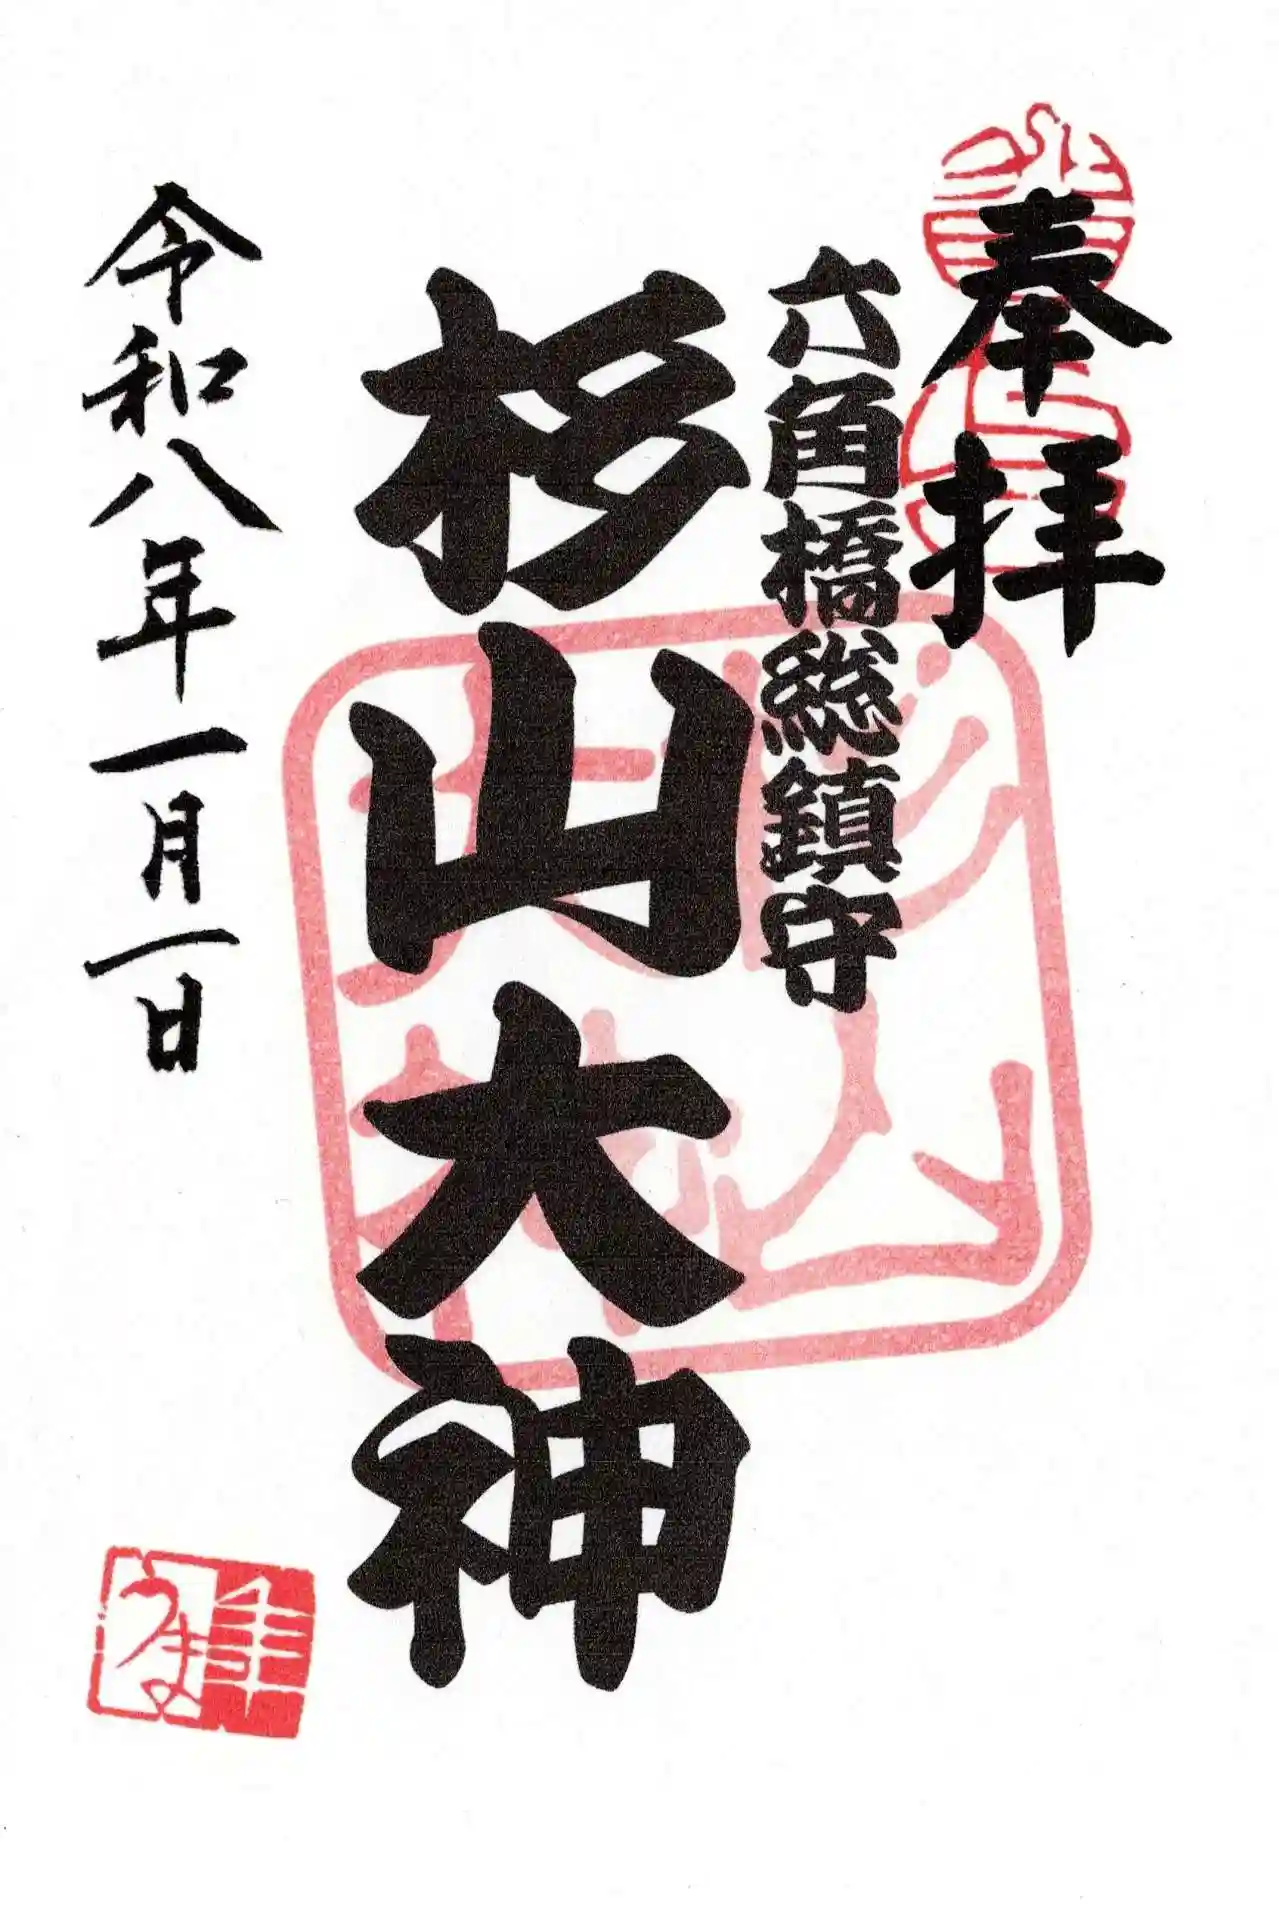 奉拝
六角橋総鎮守
杉山大神
令和八年一月一日
杉山
大神
午
うま